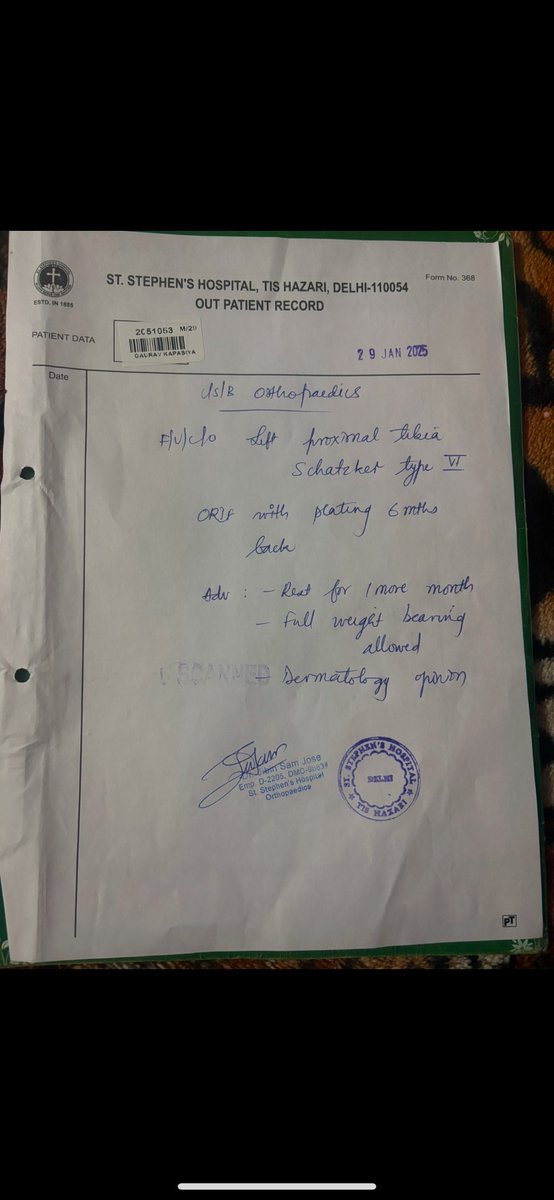 ST. STEPHEN'S HOSPITAL, TIS HAZARI, DELHI-110054
Form No. 368
OUT PATIENT RECORD
ESTD. IN 1885
PATIENT DATA
2051063 M/29
GAURAV KAPASIYA
29 JAN 2025
Date
C/S/B Orthopaedics
F/U/C/O Left proximal tibia
Schatzker type VI
ORIF with plating 6 mths
back
Adv : - Rest for 1 more month
- Full weight bearing
allowed
SCANNED
- Dermatology opinion
Sam Jose
Emp. D-2205, DMC-
St. Stephen's Hospital
Orthopaedics
ST. STEPHEN'S HOSPITAL
DELHI
TIS HAZARI
PT